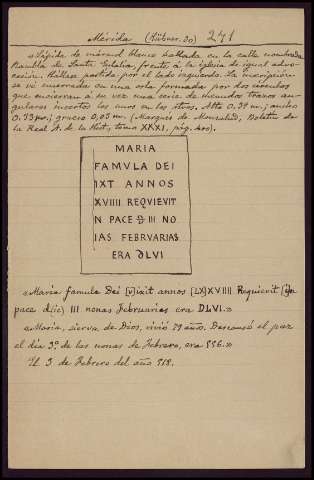 Mérida (Hübner. 30) 271
«Lápida de mármol blanco hallada en la calle nombrada
Rambla de Santa Eulalia, frente á la iglesia de igual advo-
cación. Hállase partida por el lado izquierdo. La inscripción
se vé encerrada en una orla formada por dos círculos
que encierran á su vez una serie de menudos trazos an-
gulares insertos los unos en los otros. Alto 0,34 m.; ancho
0,33 m.; grueso 0,03 m. (Marqués de Monsalud, Boletín de
la Real A. de la Hist., tomo XXXI, pág. 400).
MARIA
FAMVLA DEI
IXT ANNOS
XVIIII REQVIEVIT
N PACE Đ III NO
IAS FEBRVARIAS
ERA DLVI
«Maria famula Dei [v]ixit annos [LX]XVIIII Requievit [i]n
pace d(ie) III nonas Februarias era DLVI.»
«María, sierva de Dios, vivió 79 años. Descansó el paz
el día 3º de las nonas de Febrero, era 556.»
El 3 de Febrero del año 518.